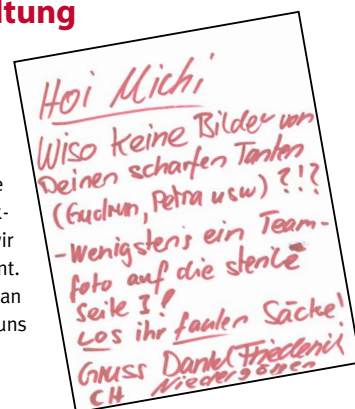 ltung
e
k-
vir
nt.
an
uns
Hoi Michi
Wiso keine Bilder von
Deinen scharfen Tanten
(Gudrun, Petra usw) ?!?
-Wenigstens ein Team-
foto auf die
Seite 3!
Los ihr faulen Säcke!
Gruss Daniel
CH